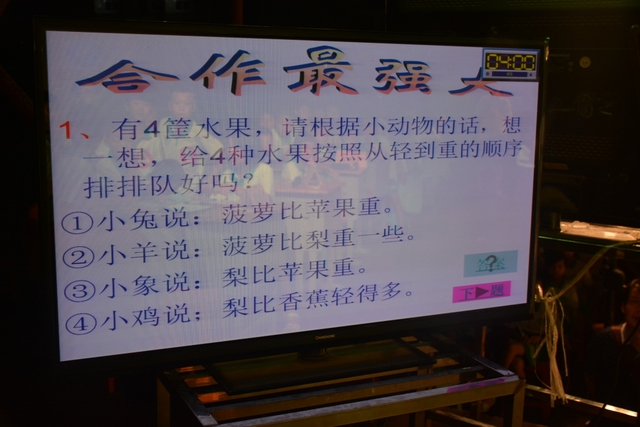 合作最强大
04:00
1、有4筐水果，请根据小动物的话，想
一想，给4种水果按照从轻到重的顺序
排排队好吗？
①小兔说：菠萝比苹果重。
②小羊说：菠萝比梨重一些。
③小象说：梨比苹果重。
④小鸡说：梨比香蕉轻得多。
?
下▶题